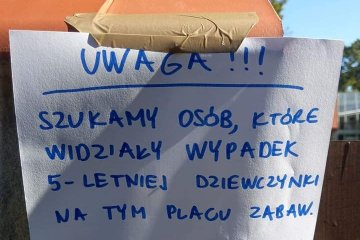 UWAGA !!!
SZUKAMY OSÓB, KTÓRE
WIDZIAŁY WYPADEK
5-LETNIEJ DZIEWCZYNKI
NA TYM PLACU ZABAW.